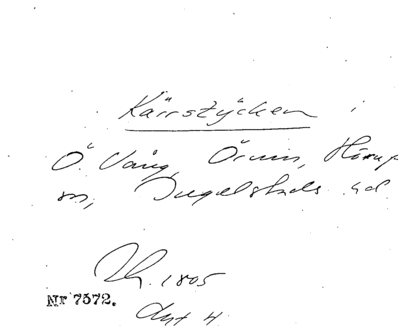 Kärrstÿcken
Ö. Vång, Örum, Hörup
sn, Ingelstads hd
1805
Nr 7572.
Akt 4